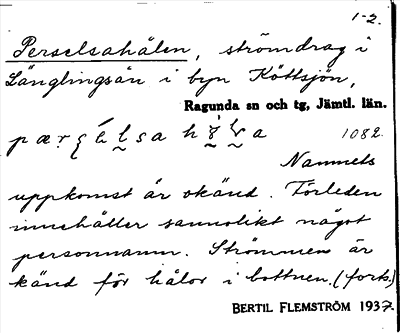 1-2.
Perselsahålen, strömdrag i
Långlingsån i byn Köttsjön,
Ragunda sn och tg, Jämtl. län.
1082
Namnets
uppkomst är okänd. Förleden
innehåller sannolikt något
personnamn. Strömmen är
känd för hålor i bottnen. (forts.)
BERTIL FLEMSTRÖM 1937.